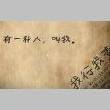 有一种人，叫我。
我行我素